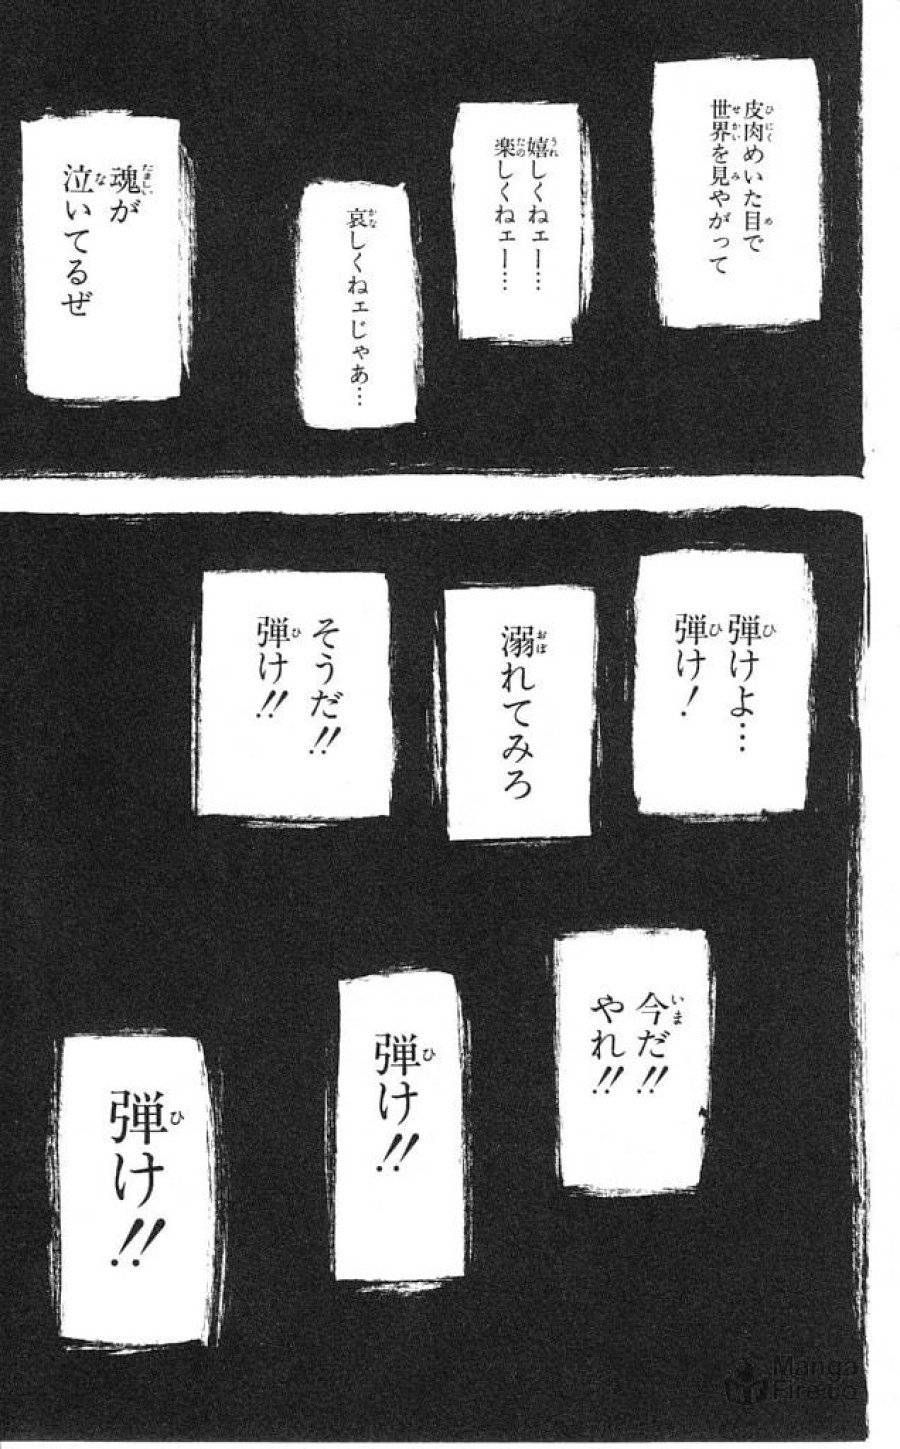 皮肉めいた目で
世界を見やがって
嬉しくねェー…
楽しくねェー…
哀しくねェじゃあ…
魂が
泣いてるぜ
弾けよ…
弾け！
溺れてみろ
そうだ!!
弾け!!
今だ!!
やれ!!
弾け!!
弾け!!
Manga
Fire.to